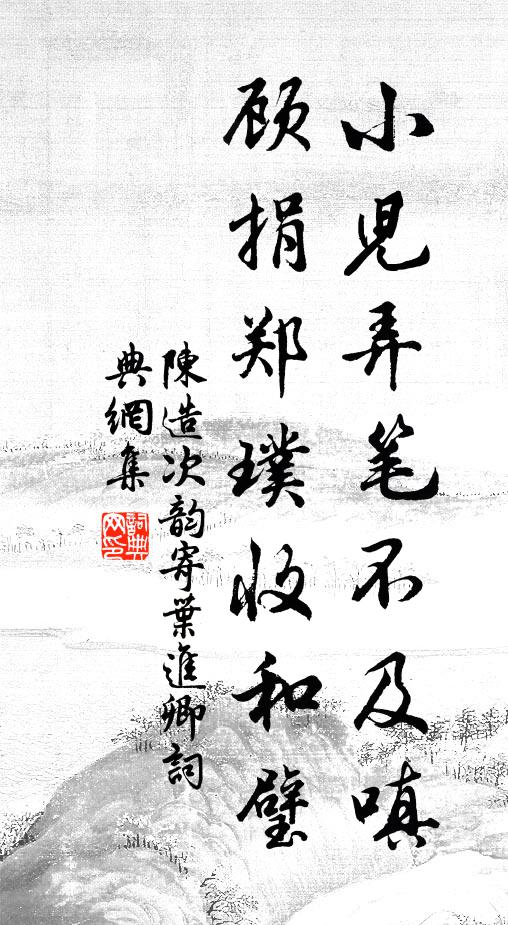 小児弄笔不及嗔
顾捐郑璞收和璧
陳造次韵寄葉進卿詞
典網集
詞典